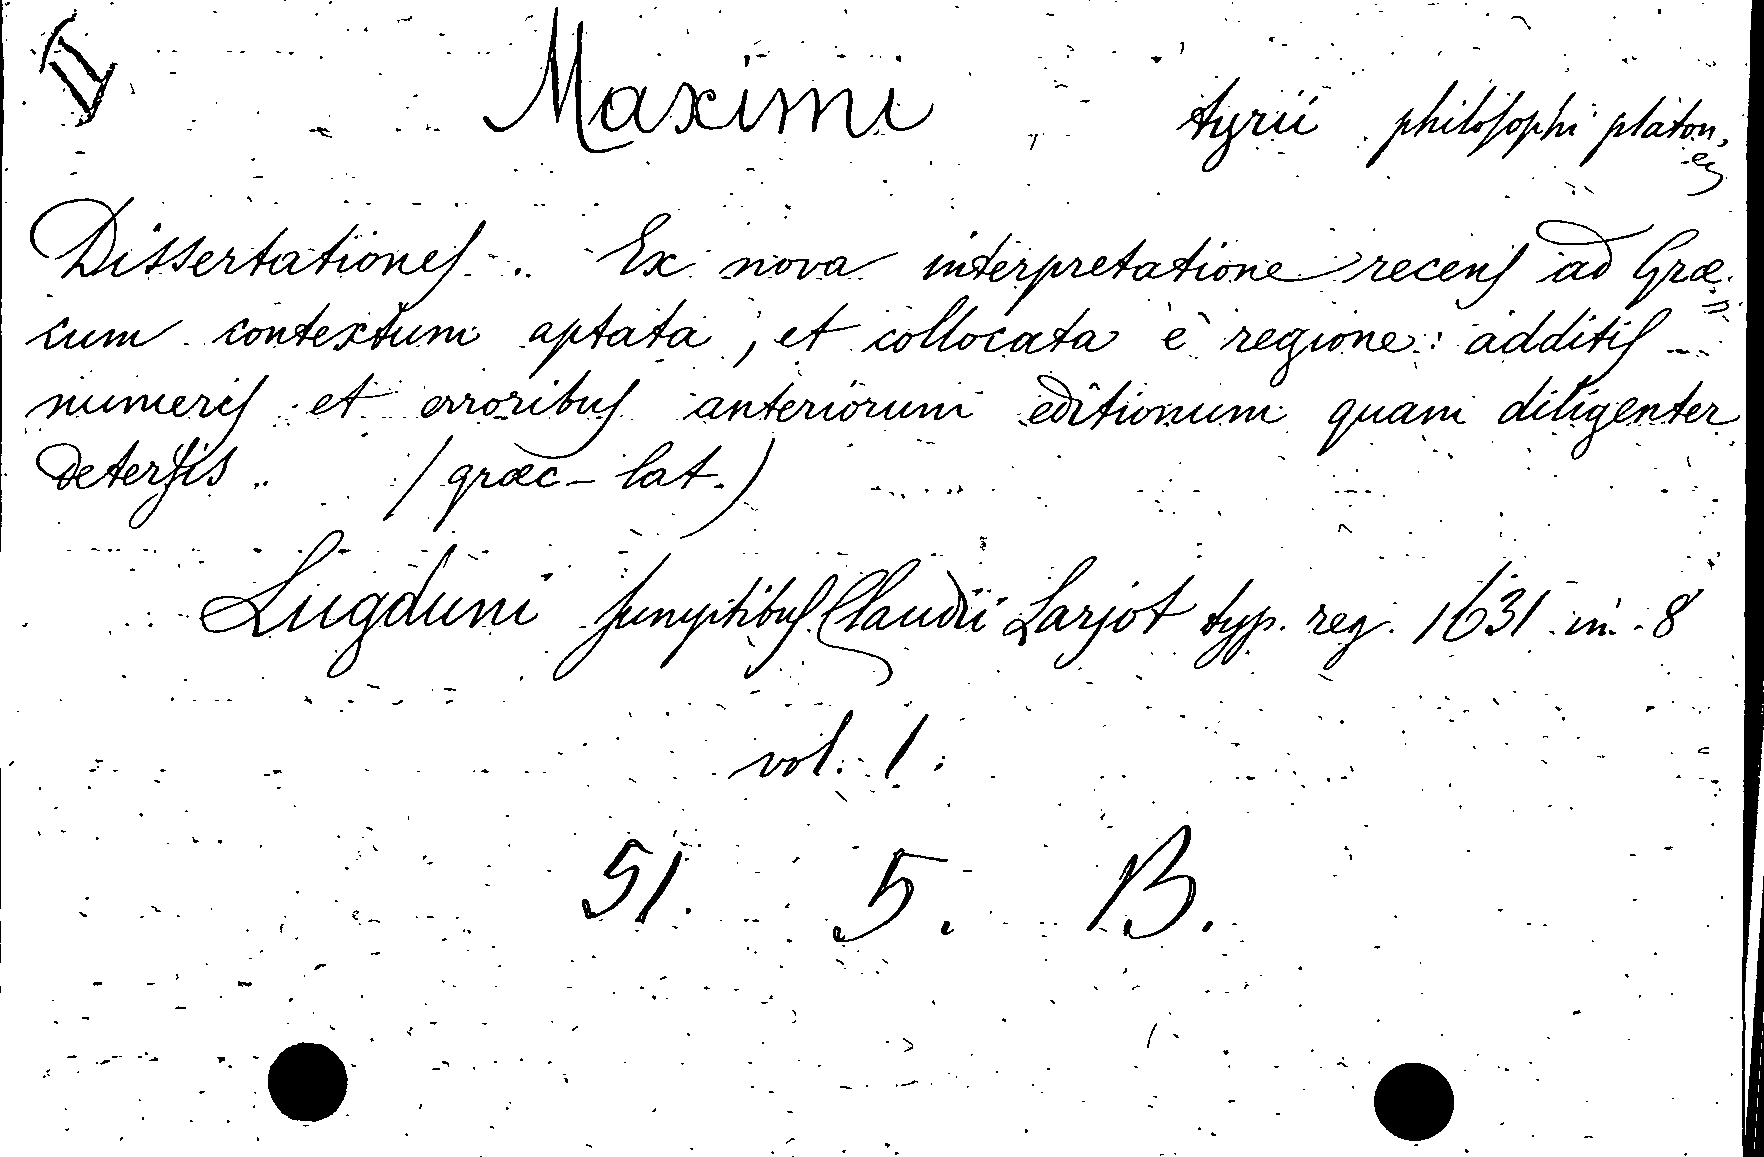 II
Maximi tyrii philosophi platon,
ci
Dissertationes .. Ex nova interpretatione recens ad Græ-
cum contextum aptata, et collocata è regione: additis
numeris et erroribus anteriorum editionum quam diligenter
detersis .. (græc-lat.)
Lugduni sumptibus Claudii Larjot typ. reg. 1631 in-8
vol. 1.
51. 5. B.